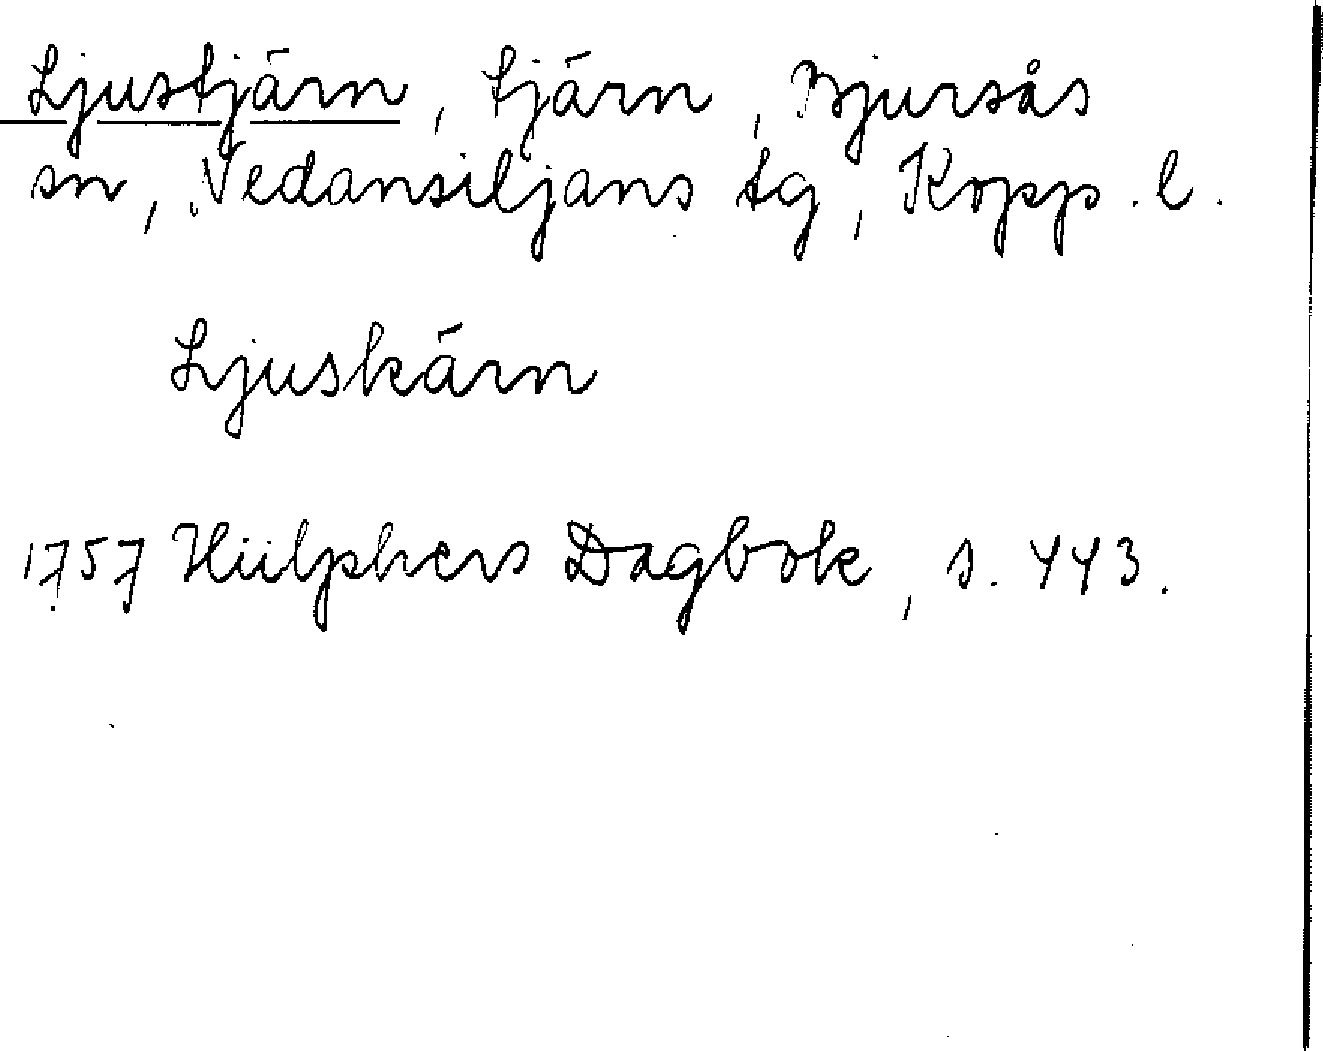 Ljustjärn, tjärn, Bjursås
sn, Nedansiljans tg, Kopp. l.
Ljuskärn
1757 Hülphers Dagbok, s. 443.